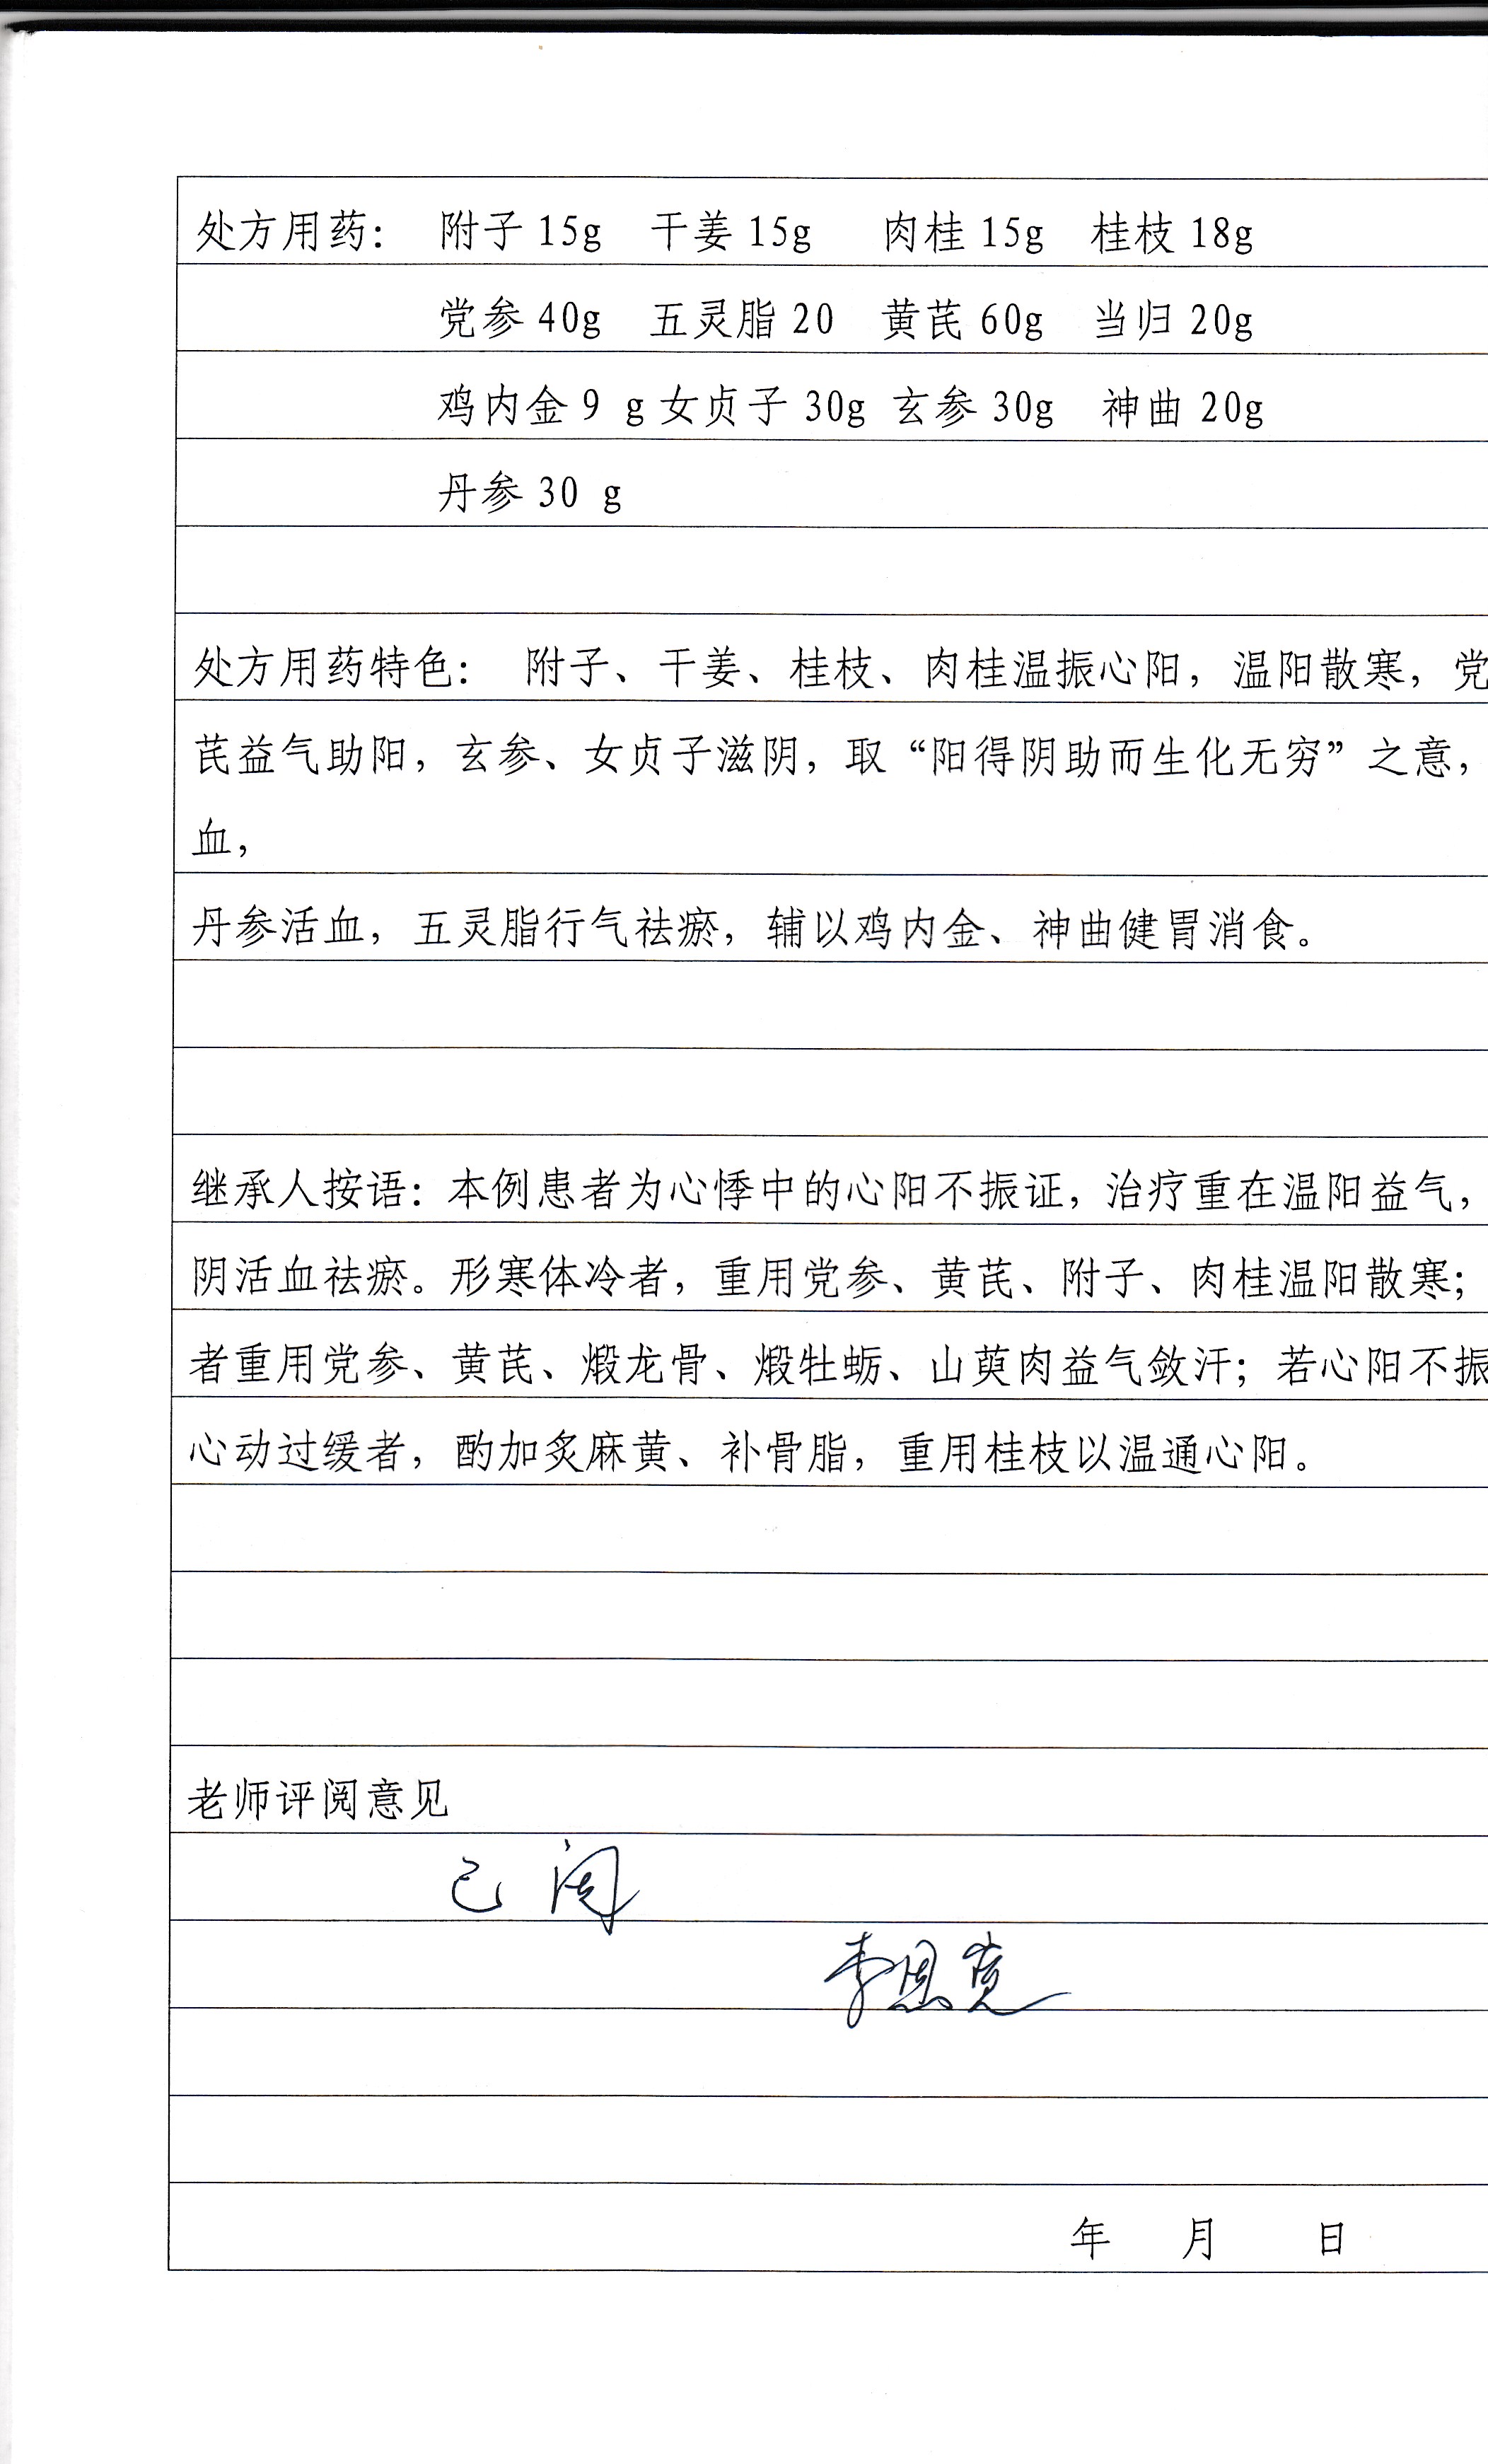 处方用药： 附子 15g 干姜 15g 肉桂 15g 桂枝 18g
党参 40g 五灵脂 20 黄芪 60g 当归 20g
鸡内金 9 g 女贞子 30g 玄参 30g 神曲 20g
丹参 30 g
处方用药特色： 附子、干姜、桂枝、肉桂温振心阳，温阳散寒，党
芪益气助阳，玄参、女贞子滋阴，取“阳得阴助而生化无穷”之意，
血，
丹参活血，五灵脂行气祛瘀，辅以鸡内金、神曲健胃消食。
继承人按语：本例患者为心悸中的心阳不振证，治疗重在温阳益气，
阴活血祛瘀。形寒体冷者，重用党参、黄芪、附子、肉桂温阳散寒；
者重用党参、黄芪、煅龙骨、煅牡蛎、山萸肉益气敛汗；若心阳不振
心动过缓者，酌加炙麻黄、补骨脂，重用桂枝以温通心阳。
老师评阅意见
已阅
李恩宽
年 月 日